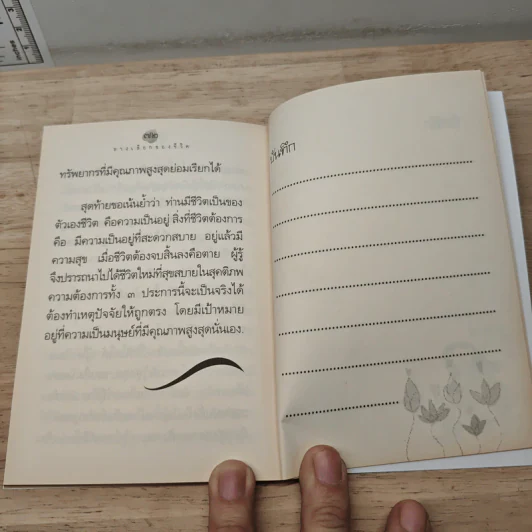 ทางเลือกของชีวิต
ทรัพยากรที่มีคุณภาพสูงสุดย่อมเรียกได้
สุดท้ายขอเน้นย้ำว่า ท่านมีชีวิตเป็นของ
ตัวเองชีวิต คือความเป็นอยู่ สิ่งที่ชีวิตต้องการ
คือ มีความเป็นอยู่ที่สะดวกสบาย อยู่แล้วมี
ความสุข เมื่อชีวิตต้องจบสิ้นลงคือตาย ผู้รู้
จึงปรารถนาไปได้ชีวิตใหม่ที่สุขสบายในสุคติภพ
ความต้องการทั้ง ๓ ประการนี้จะเป็นจริงได้
ต้องทำเหตุปัจจัยให้ถูกตรง โดยมีเป้าหมาย
อยู่ที่ความเป็นมนุษย์ที่มีคุณภาพสูงสุดนั่นเอง.
บันทึก